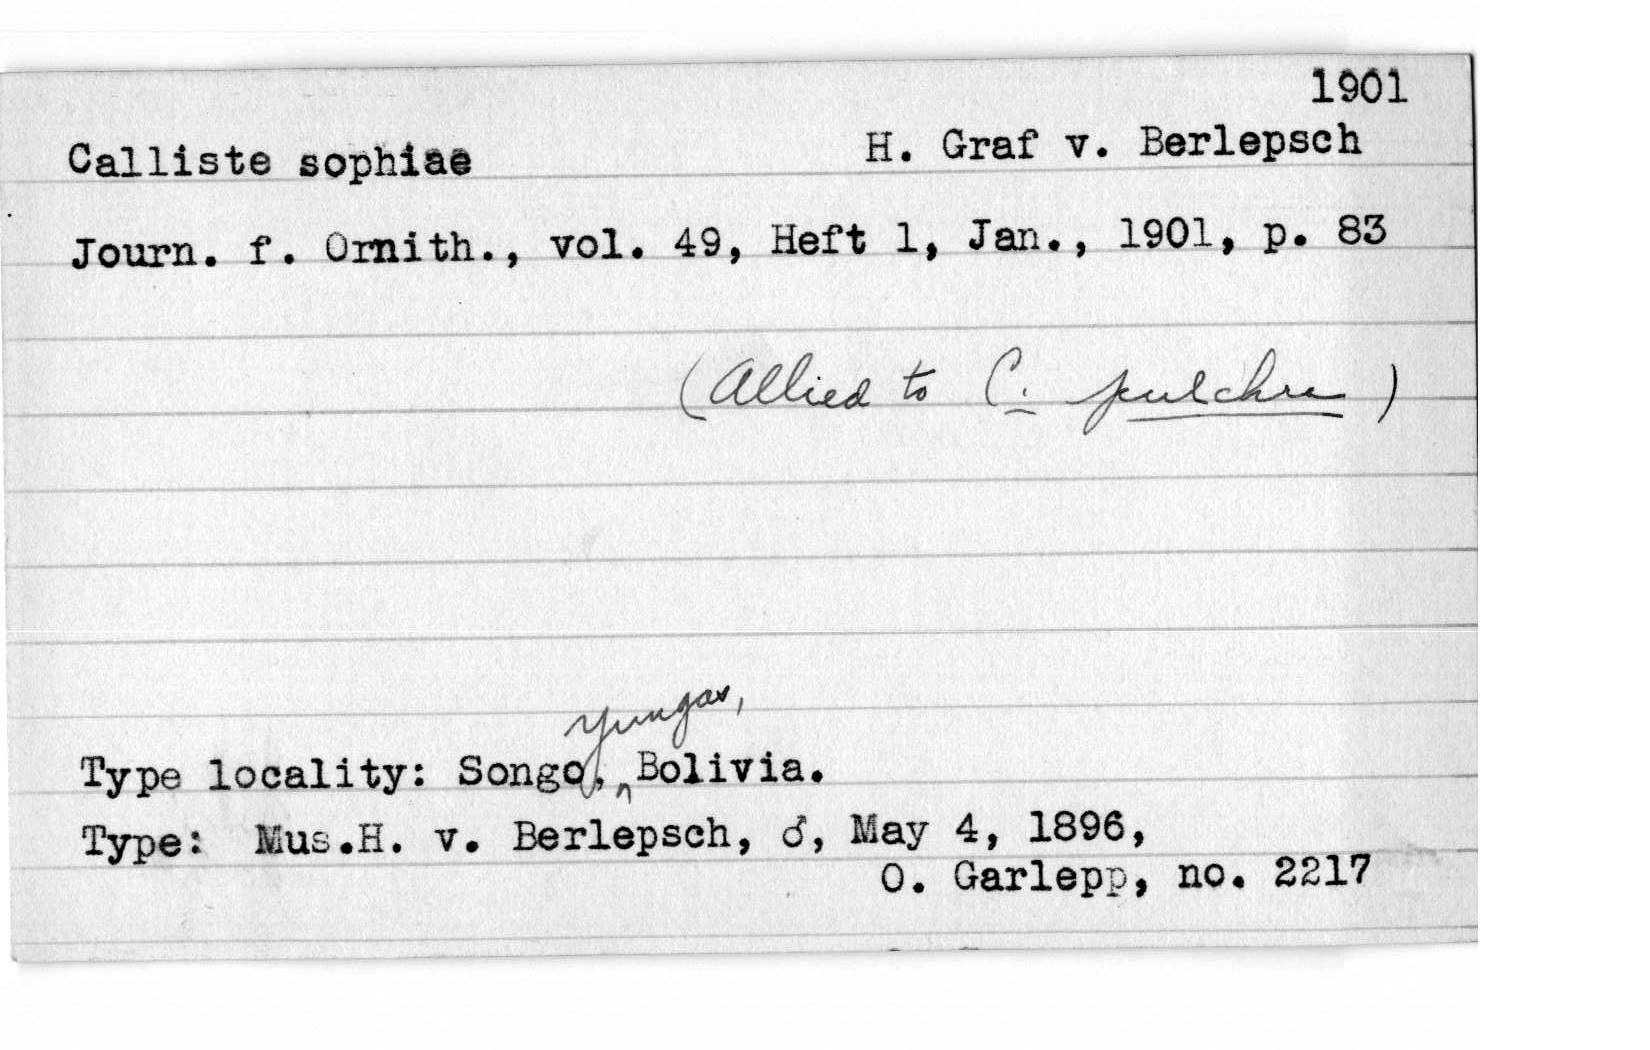 1901
Calliste sophiae H. Graf v. Berlepsch
Journ. f. Ornith., vol. 49, Heft 1, Jan., 1901, p. 83
(Allied to C. pulchra)
Yungas,
Type locality: Songo, Bolivia.
Type: Mus.H. v. Berlepsch, ♂, May 4, 1896,
O. Garlepp, no. 2217